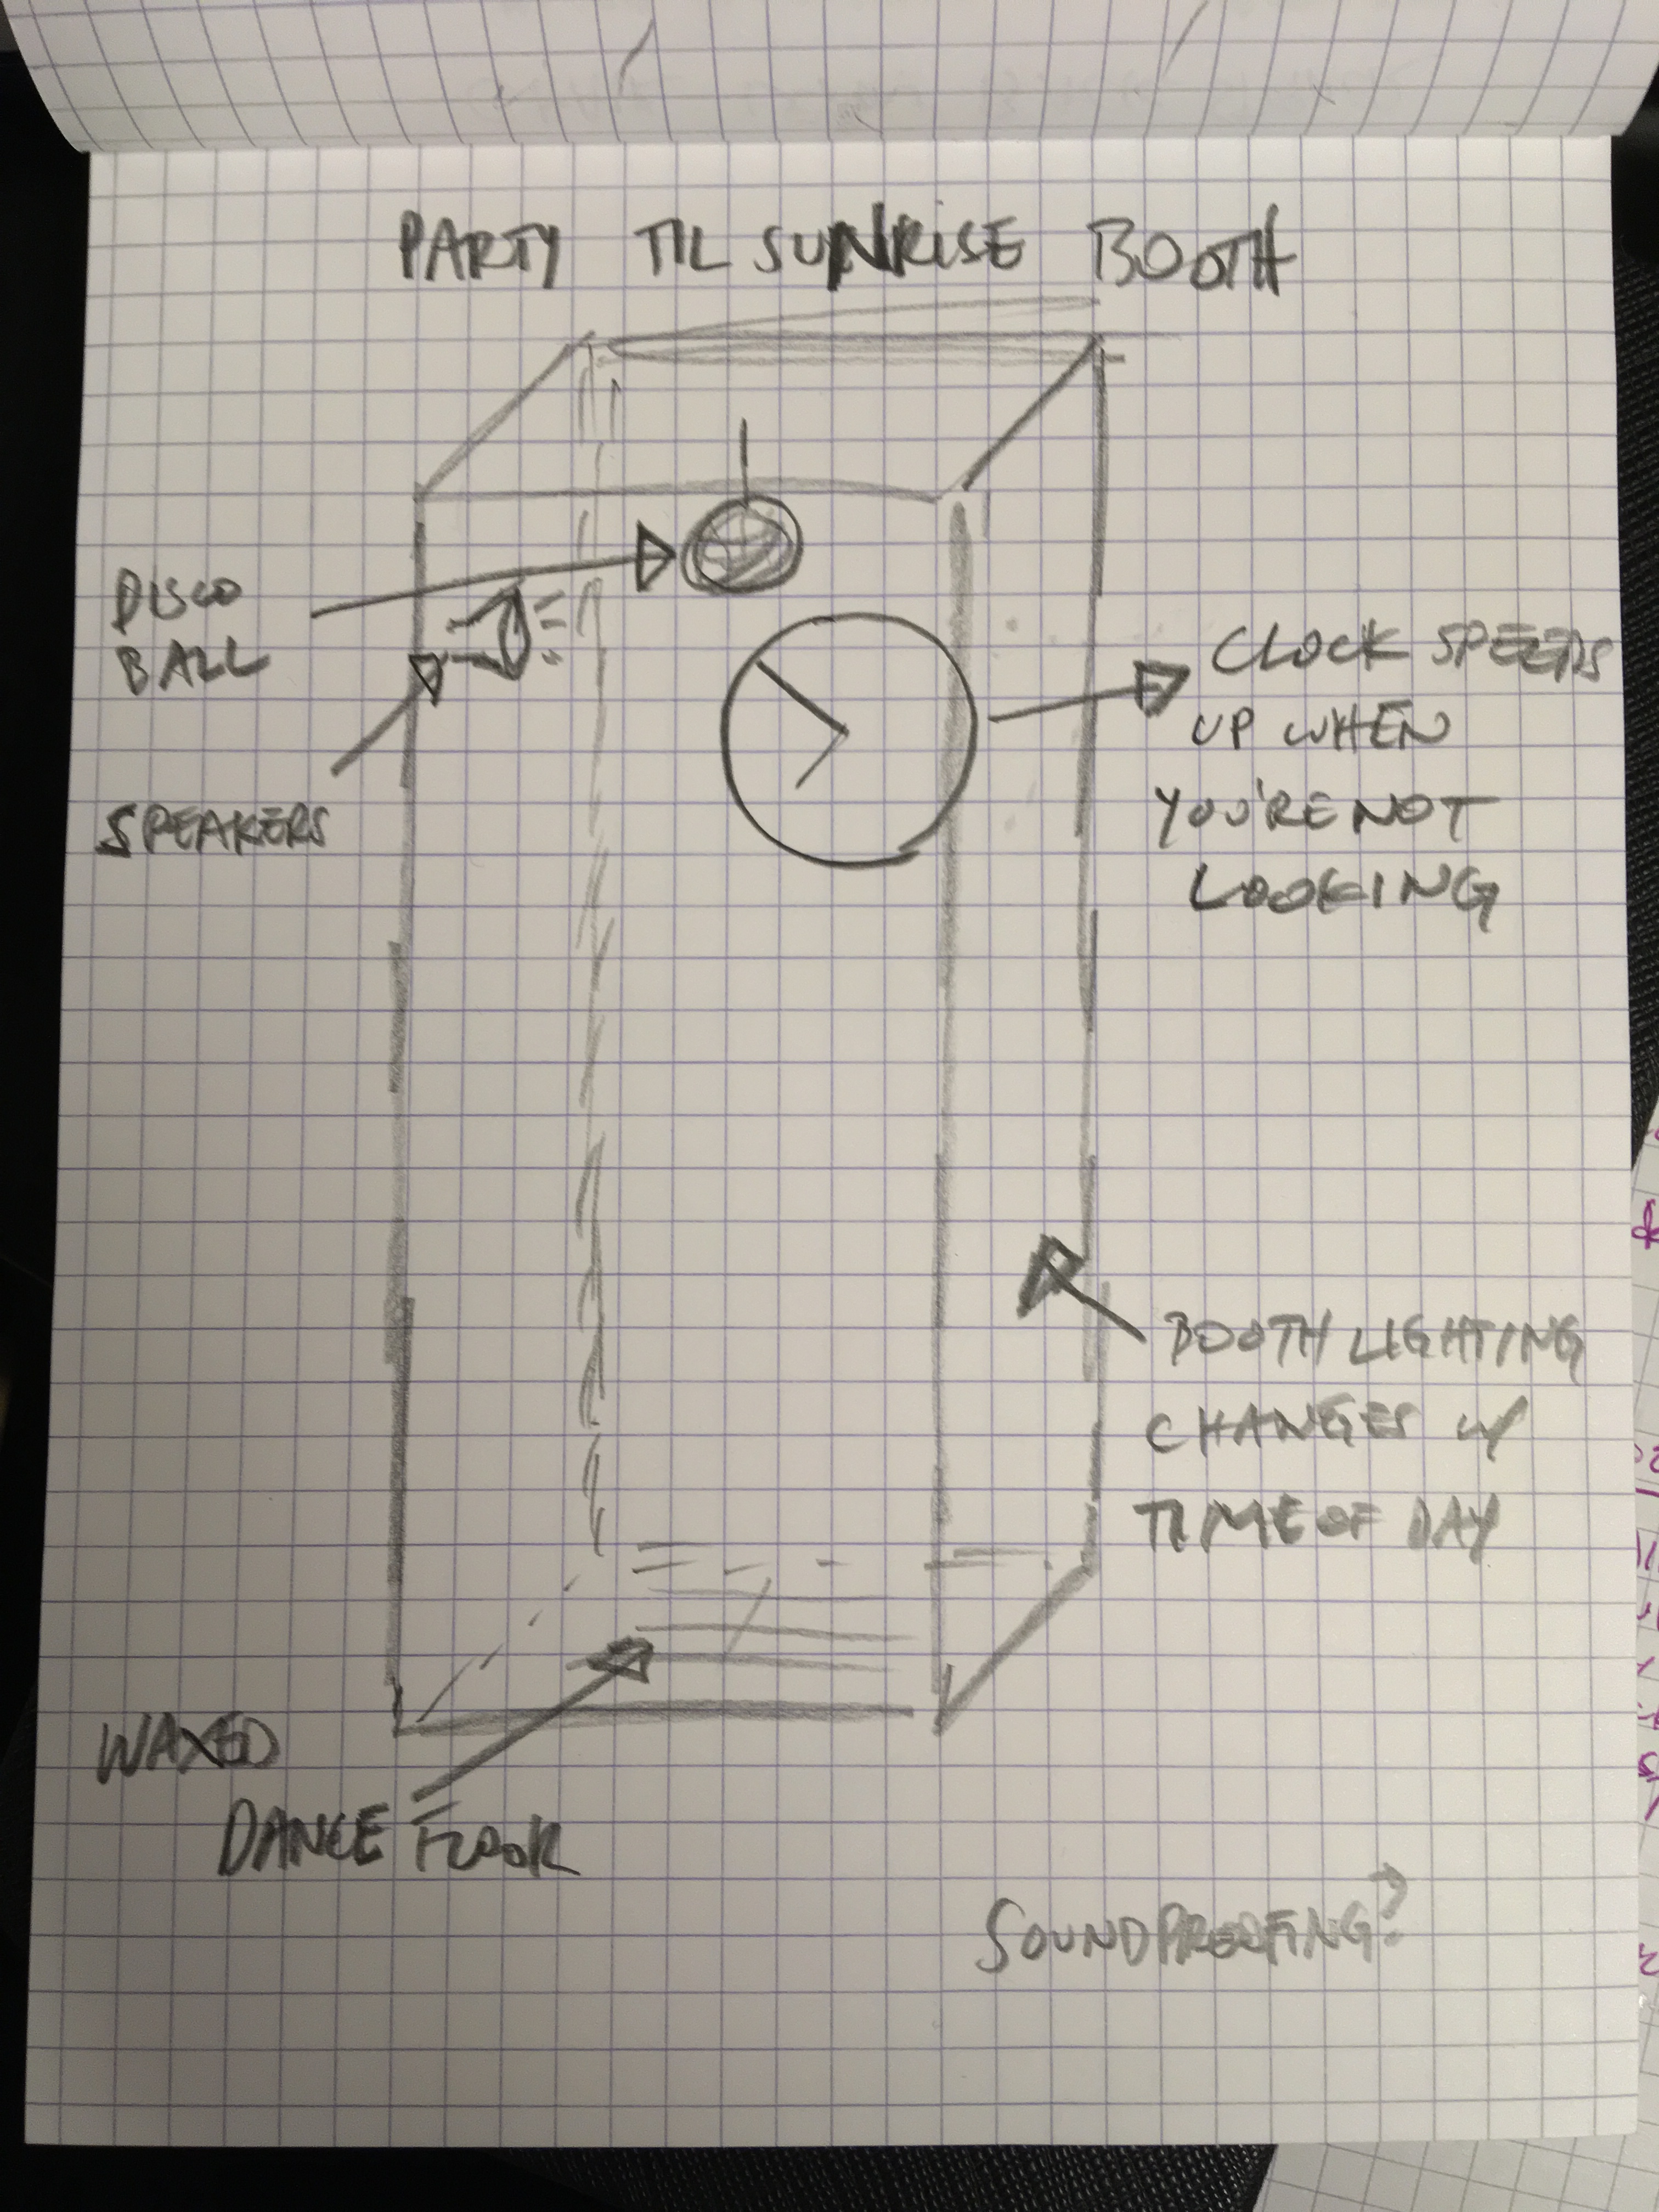 PARTY TIL SUNRISE BOOTH
DISCO
BALL
SPEAKERS
CLOCK SPEEDS
UP WHEN
YOU'RE NOT
LOOKING
BOOTH LIGHTING
CHANGES W/
TIME OF DAY
WAXED
DANCE FLOOR
SOUNDPROOFING?